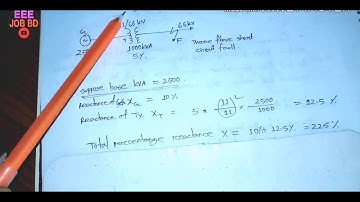 EEE
JOB BD
1/66 kV
66 kV
G
25
1000 kVA
5%
F
Three phase short
circuit fault.
Suppose base kVA = 2500.
Reactance of X_G = 10%
Reactance of Tx. X_T = 5 × (11/11)² × 2500/1000 = 12.5%.
Total percentange reactance X = 10%+ 12.5%. = 22.5%.